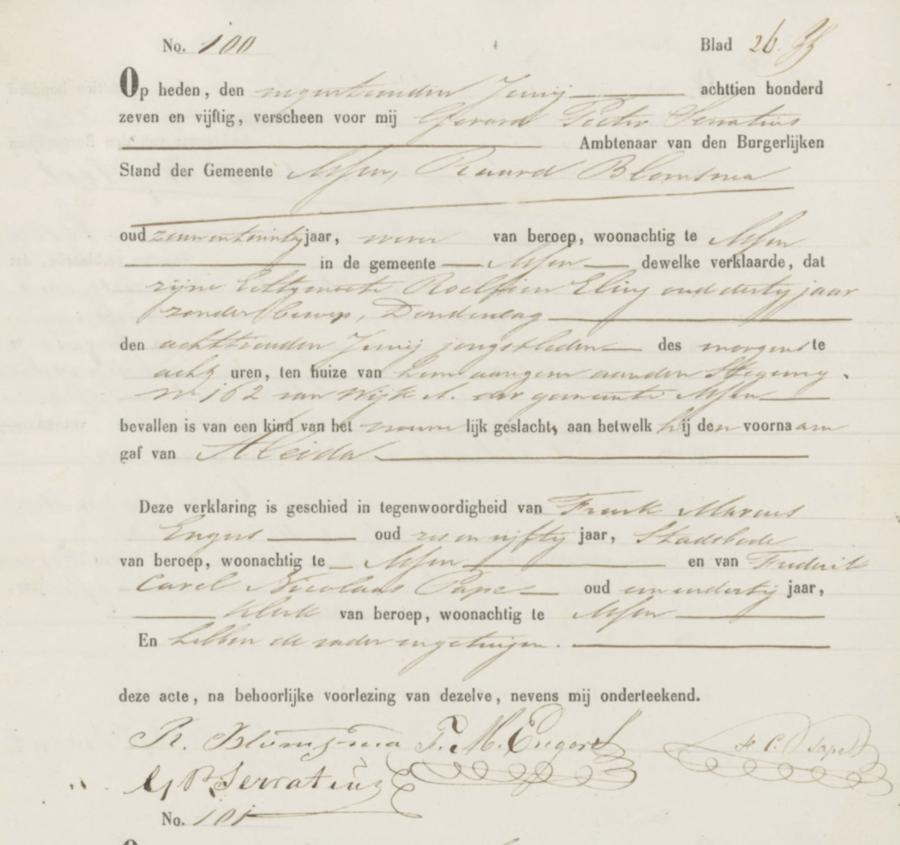 No. 100 Blad 26.
Op heden, den negentienden Junij achttien honderd
zeven en vijftig, verscheen voor mij Gerard Pieter Servatius
Ambtenaar van den Burgerlijken
Stand der Gemeente Assen, Roaurd Blomsma
oud zevenentwintig jaar, van beroep, woonachtig te Assen
in de gemeente Assen dewelke verklaarde, dat
zijne Echtgenoote Roelfien Eling oud dertig jaar
zonder beroep, Donderdag
den achttienden Junij jongstleden des morgens te
acht uren, ten huize van hem aangever aan den
No 162 van Wijk A. der gemeente Assen
bevallen is van een kind van het vrouwelijk geslacht, aan hetwelk hij den voornaam
gaf van Aleida
Deze verklaring is geschied in tegenwoordigheid van Frank Marcus
Engers oud zes en vijftig jaar, Stadsbode
van beroep, woonachtig te Assen en van Frederik
Carel Nicolaas Pape oud een en dertig jaar,
klerk van beroep, woonachtig te Assen
En hebben de vader en getuigen.
deze acte, na behoorlijke voorlezing van dezelve, nevens mij onderteekend.
R. Blomsma F. M. Engers F. C. N. Pape
G P Servatius
No. 101